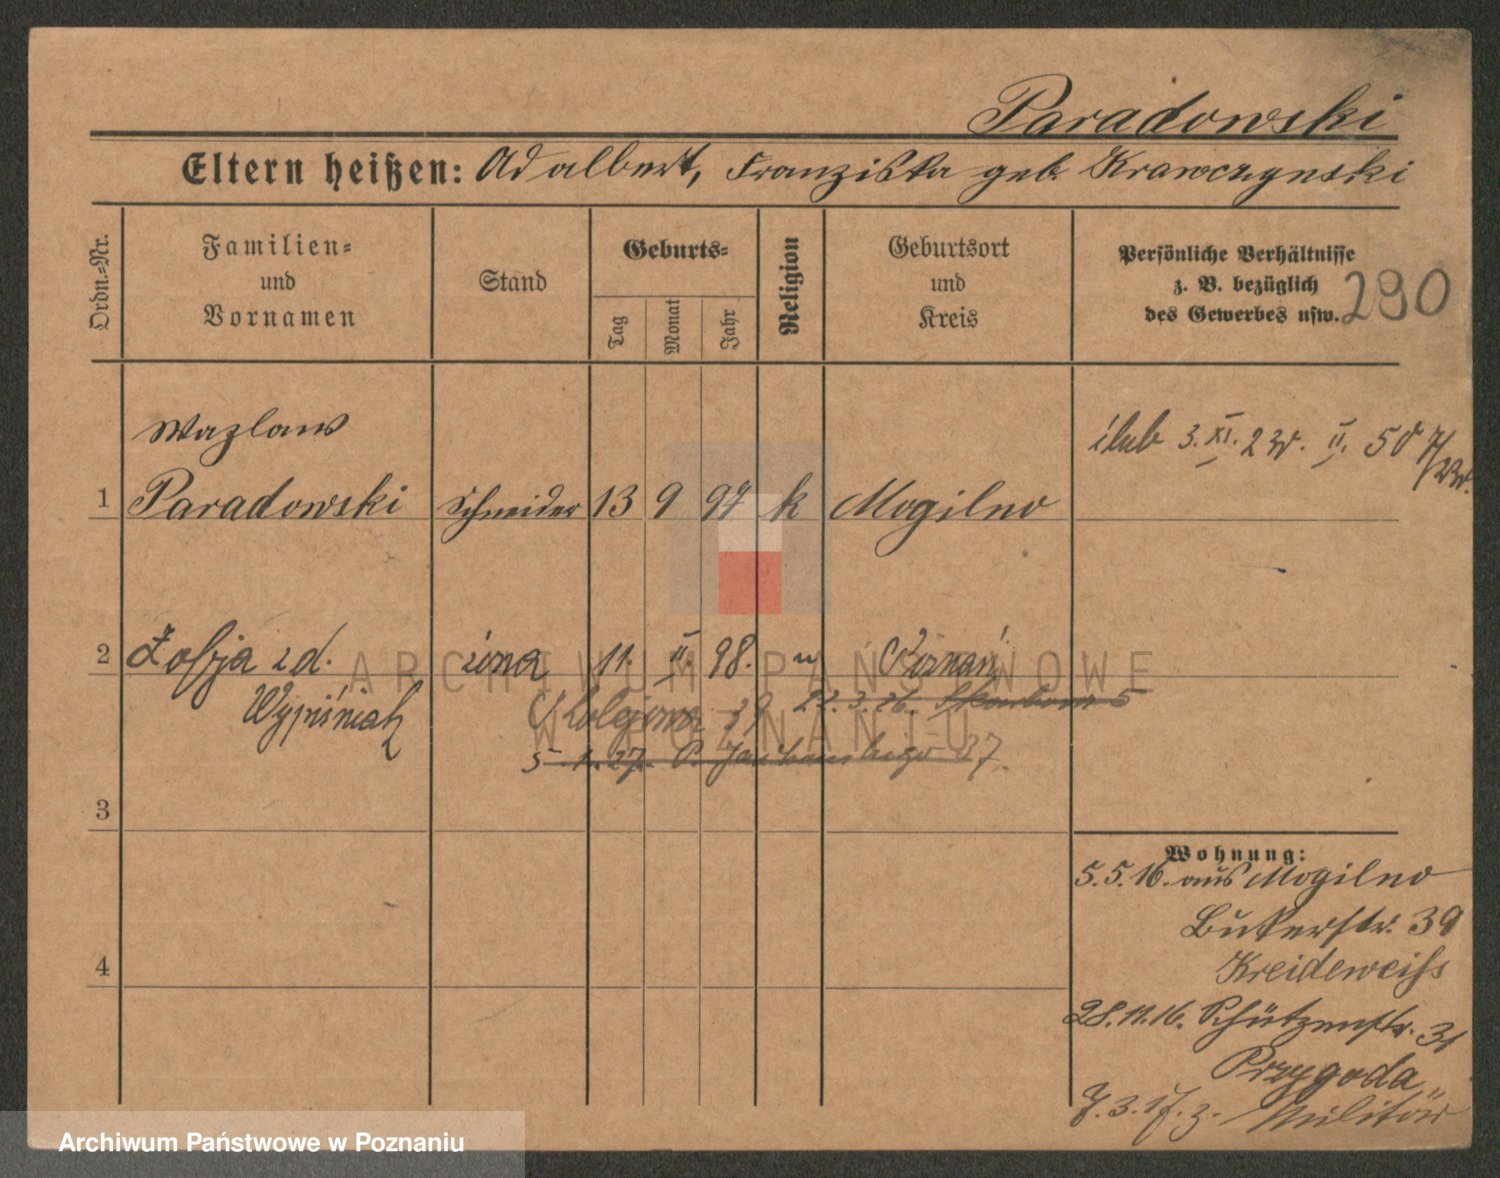 Paradowski
Eltern heißen: Adalbert, Franziska geb. Krawczynski
Ordn.-Nr.
Familien-
und
Vornamen
Stand
Geburts-
Tag
Monat
Jahr
Religion
Geburtsort
und
Kreis
Persönliche Verhältnisse
z. B. bezüglich
des Gewerbes usw.
290
Wazlaw
1 Paradowski Schneider 13 9 97 k Mogilno
ślub 3. XI. 23r. II. 50
2 Zofja zd. żona 11. II. 98. " Poznań
Wypiśniak
Kolejowa 39 22. 3. 26. Skarbowa 5
5. 1. 27. 37.
3
4
Wohnung:
5.5.16. aus Mogilno
Bukerstr. 39
Kreideweiss
28.11.16. Schützenstr. 31
Przygoda
7.3.17. z. Militär
ARCHIWUM PAŃSTWOWE
W POZNANIU
Archiwum Państwowe w Poznaniu